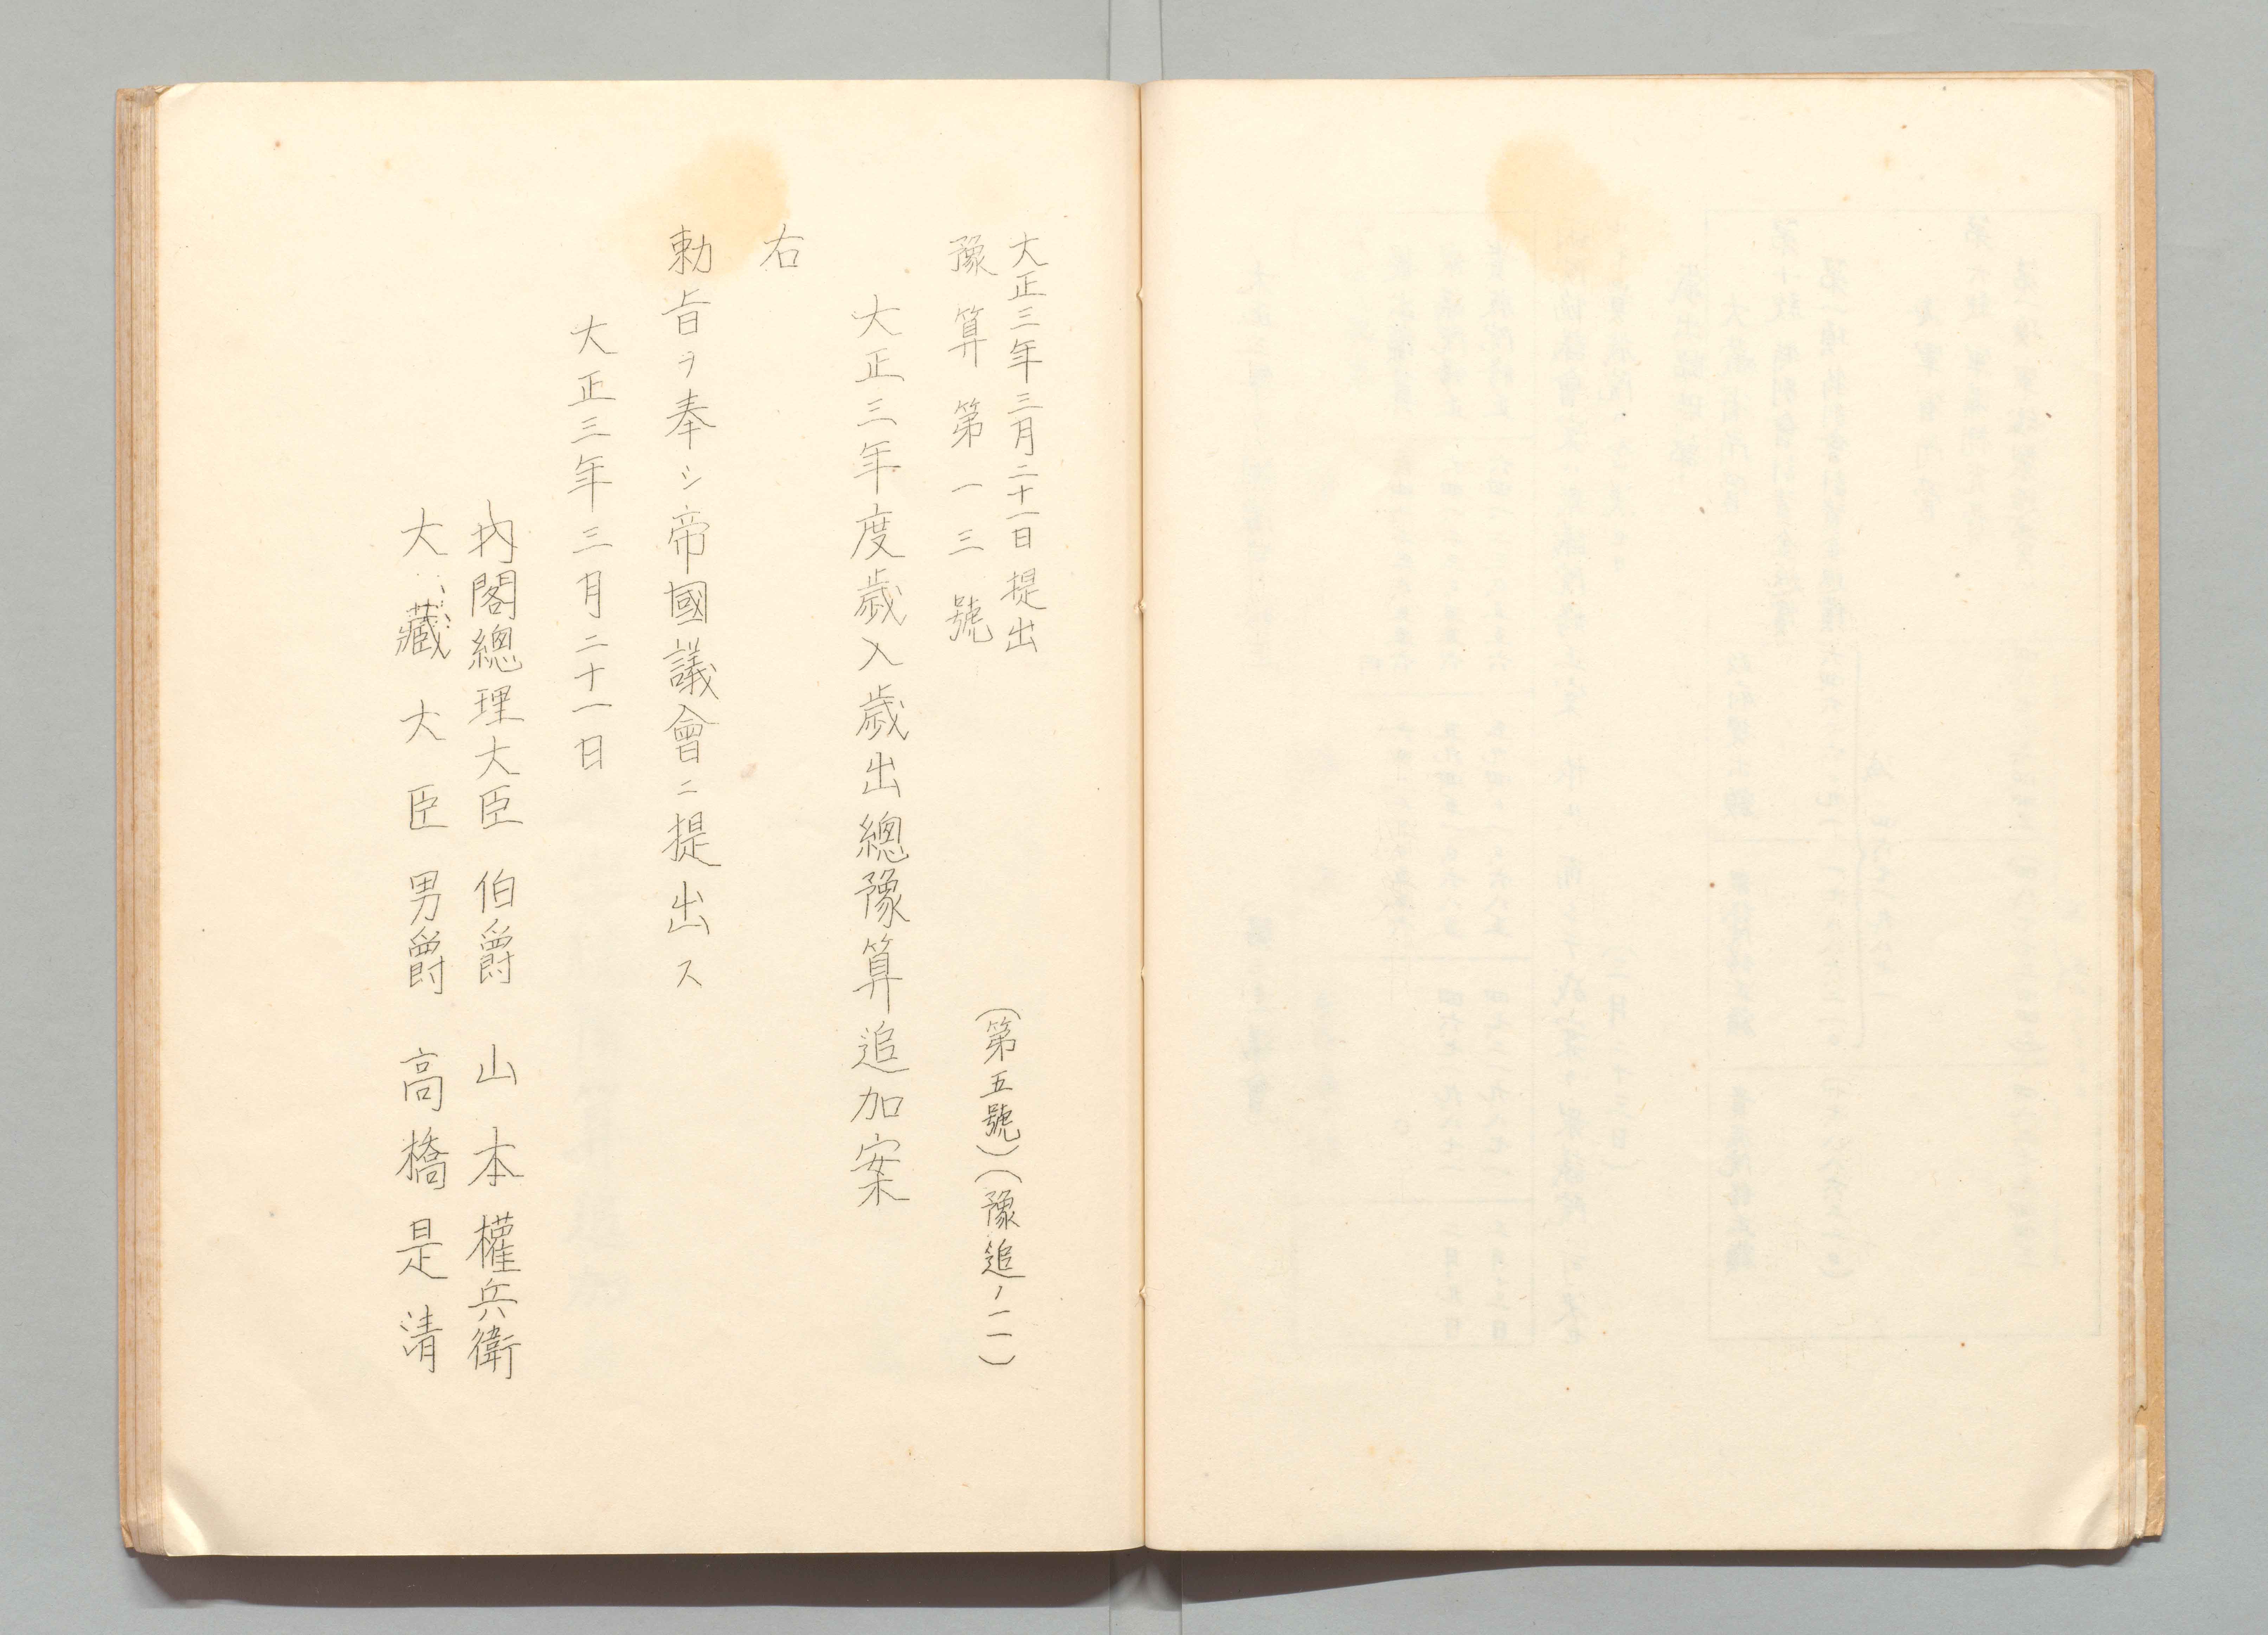 大正三年三月二十一日提出
豫算第一三號
（第五號）（豫追ノ二）
大正三年度歳入歳出總豫算追加案
右
勅旨ヲ奉シ帝國議會ニ提出ス
大正三年三月二十一日
內閣總理大臣 伯爵 山本權兵衛
大藏大臣 男爵 高橋是清